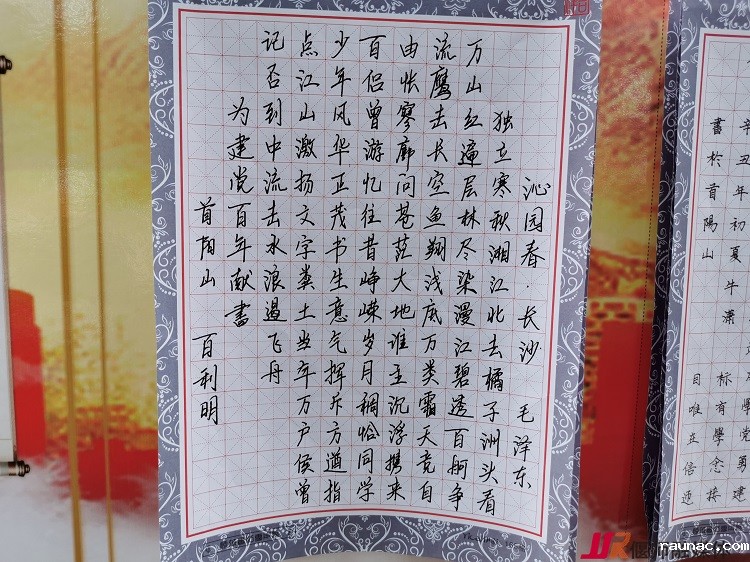 沁园春·长沙 毛泽东
独立寒秋湘江北去橘子洲头看
万山红遍层林尽染漫江碧透百舸争
流鹰去长空鱼翔浅底万类霜天竞自
由怅寒廓问苍茫大地谁主沉浮携来
百侣曾游忆往昔峥嵘岁月稠恰同学
少年风华正茂书生意气挥斥方遒指
点江山激扬文字粪土当年万户侯曾
记否到中流击水浪遏飞舟
为建党百年献书
首阳山 百利明
辛丑年初夏牛潇
書於首陽山
raunac.com